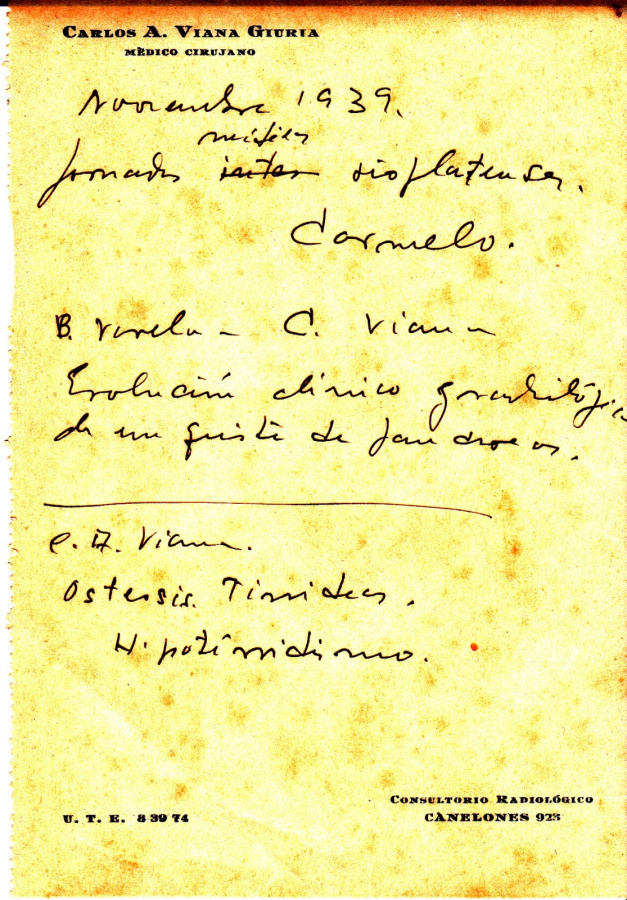 CARLOS A. VIANA GIURIA
MÈDICO CIRUJANO
Noviembre 1939.
médicas
Jornadas inter rioplatenses.
Carmelo.
B. Varela - C. Viana
Evolución clínico y radiológica
de un quiste de páncreas.
C. A. Viana.
Osteosis Tiroideas.
Hipotiroidismo.
U. T. E. 8 39 74
CONSULTORIO RADIOLÓGICO
CANELONES 923